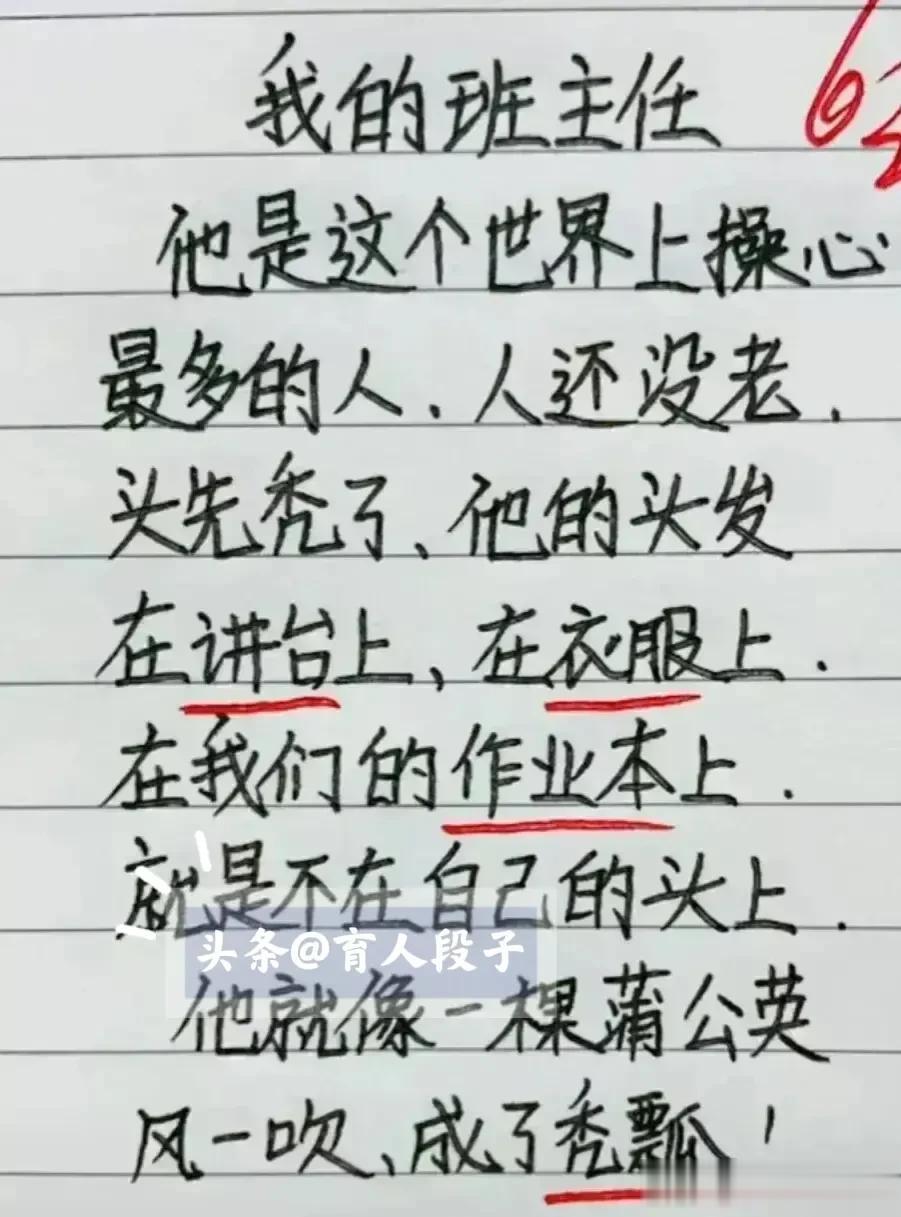 我的班主任
他是这个世界上操心
最多的人.人还没老.
头先秃了、他的头发
在讲台上、在衣服上.
在我们的作业本上.
就是不在自己的头上.
头条@育人段子
他就像一棵蒲公英
风一吹、成了秃瓢!